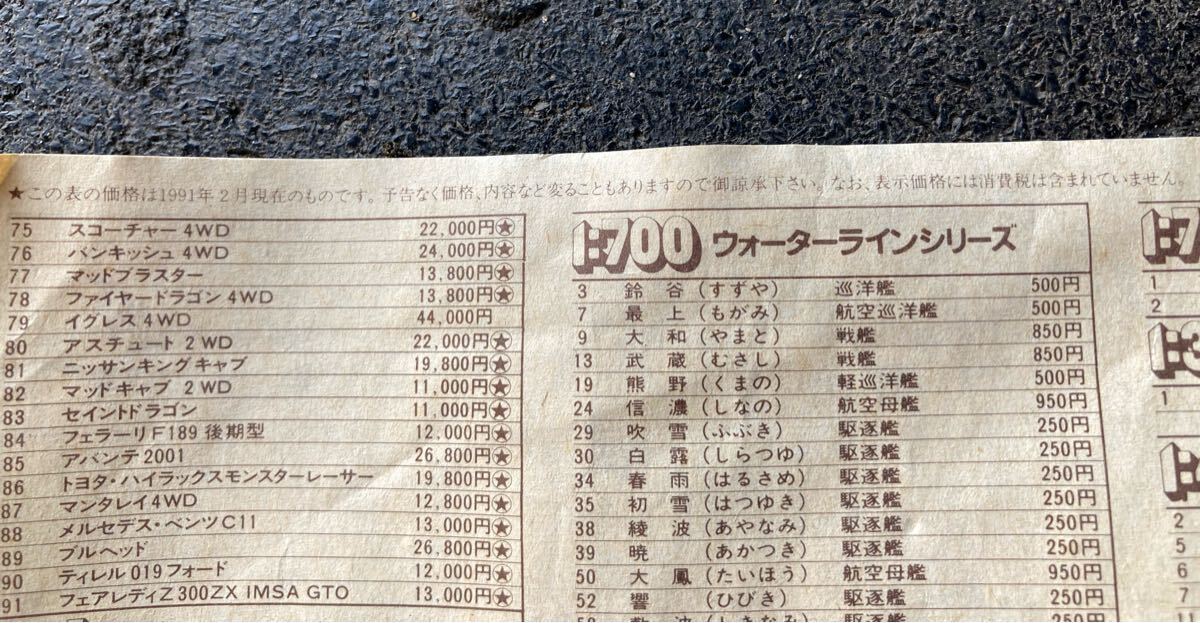 ★この表の価格は1991年2月現在のものです。予告なく価格、内容など変ることもありますので御諒承下さい。なお、表示価格には消費税は含まれていません。
75 スコーチャー 4WD 22,000円★
76 バンキッシュ 4WD 24,000円★
77 マッドブラスター 13,800円★
78 ファイヤードラゴン 4WD 13,800円★
79 イグレス 4WD 44,000円
80 アスチュート 2WD 22,000円★
81 ニッサンキングキャブ 19,800円★
82 マッドキャプ 2WD 11,000円★
83 セイントドラゴン 11,000円★
84 フェラーリF189 後期型 12,000円★
85 アバンテ2001 26,800円★
86 トヨタ・ハイラックスモンスターレーサー 19,800円★
87 マンタレイ4WD 12,800円★
88 メルセデス・ベンツC11 13,000円★
89 ブルヘッド 26,800円★
90 ティレル 019 フォード 12,000円★
91 フェアレディZ 300ZX IMSA GTO 13,000円★
1:700 ウォーターラインシリーズ
3 鈴谷(すずや) 巡洋艦 500円
7 最上(もがみ) 航空巡洋艦 500円
9 大和(やまと) 戦艦 850円
13 武蔵(むさし) 戦艦 850円
19 熊野(くまの) 軽巡洋艦 500円
24 信濃(しなの) 航空母艦 950円
29 吹雪(ふぶき) 駆逐艦 250円
30 白露(しらつゆ) 駆逐艦 250円
34 春雨(はるさめ) 駆逐艦 250円
35 初雪(はつゆき) 駆逐艦 250円
38 綾波(あやなみ) 駆逐艦 250円
39 暁(あかつき) 駆逐艦 250円
50 大鳳(たいほう) 航空母艦 950円
52 響(ひびき) 駆逐艦 250円
敷波(しきなみ) 駆逐艦 250円
1
2
1
2
5
6
7